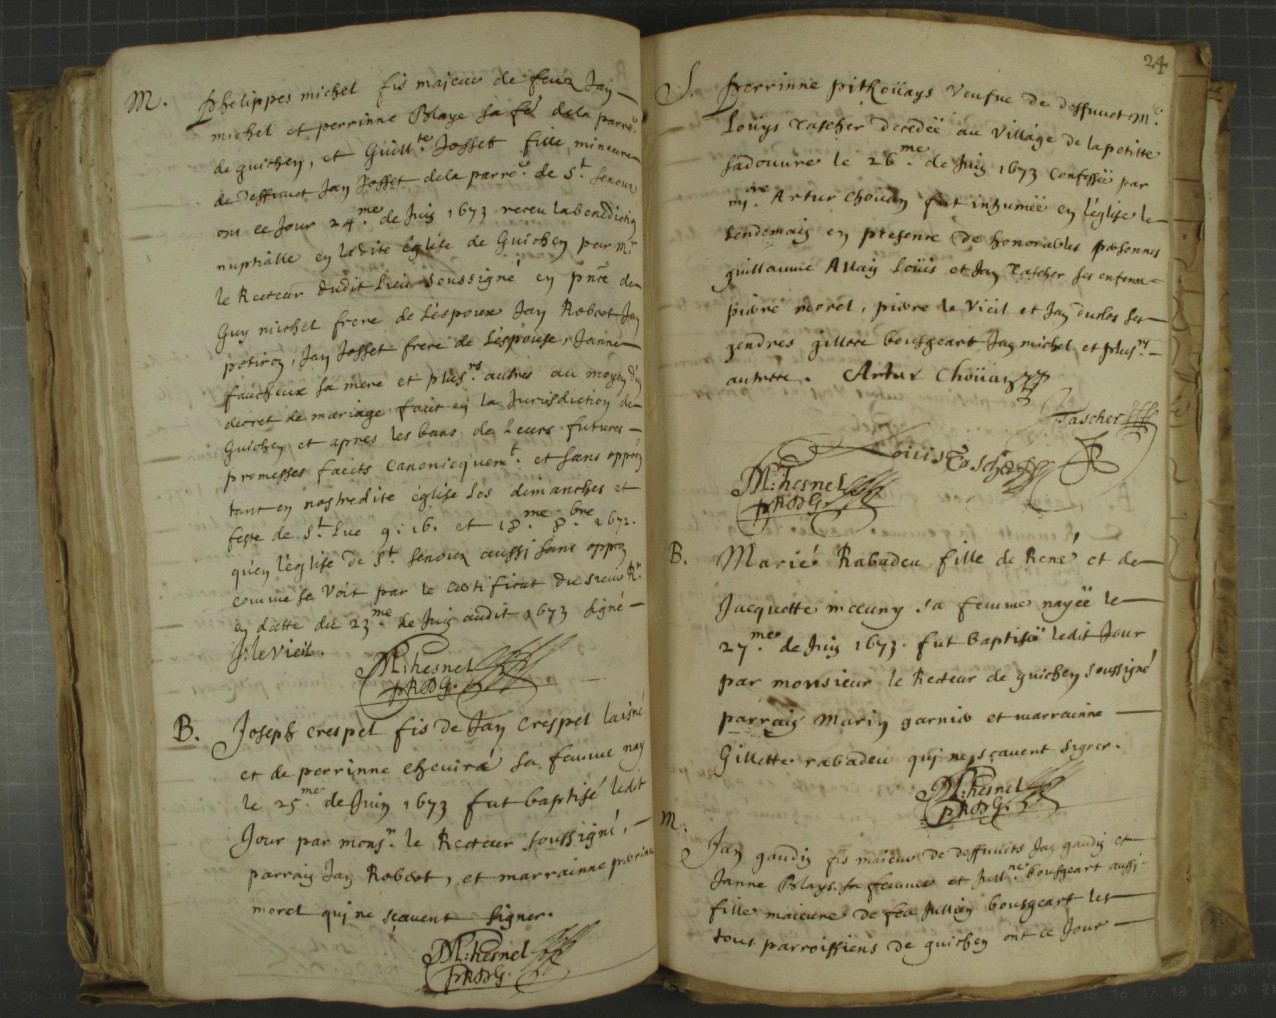 M. Phelippes michel fis majeur de feuz Jan
michel et perrinne Blaye sa fe de la parr.
de guichen, et Guill.te Josset fille mineure
de deffunct Jan Josset de la parr.e de S.t Senoux
ont ce Jour 24.me de Juin 1673 receu la benediction
nuptialle en ladite église de Guichen par M.r
le Recteur dudit Lieu soussigné en pnce de
Guy michel frere de L'espoux Jan Robert Jan
potiron, Jan Josset frere de L'espouse, Janne
faucheux sa mere et plus.rs autres au moyen d'un
decret de mariage faict en la Jurisdiction de
Guichen et apres les bans de Leurs futures
promesses faicts canonicquem.t et sans oppon
tant en nostredite église les dimanches et
feste de S.t Luc 9: 16. et 18.me 8.bre 1672.
qu'en l'église de S.t Senoux aussi sans oppon
comme se voit par le certificat du sieur R.r
en datte du 23.me de Juin audit 1673 signé
J: le Vieil.
M: hesnel
pRDG.
B. Joseph crespel fis de Jan Crespel laisné
et de perrinne chevira sa femme nay
le 25.me de Juin 1673 fut baptisé ledit
Jour par mons.r le Recteur soussigné,
parrain Jan Robert, et marrainne perrine
morel qui ne sçavent signer.
M: hesnel
pRDG.
24
S. Perrinne pitHoüays Veufue de deffunct M.e
Loüys Tascher decedée au village de la petitte
Sadouvre le 26.me de Juin 1673 Confessée par
m.re Artur Choüan fut inhumée en l'église le
lendemain en presence de honorables personnes
guillaume Allain Loüis et Jan Tascher ses enfens
pierre morel, pierre le Vieil et Jan duclos ses
gendres gillette bousgeart Jan michel et plus.rs
autrers. Artur Choüan
Tascher
Louis Tascher
M: hesnel
pRDG.
B. Marie Rabadeu fille de René et de
Jacquette meauny sa femme nayée le
27.me de Juin 1673. fut baptisée ledit Jour
par monsieur le Recteur de guichen soussigné
parrain Marin garnier et marrainne
Gillette rabadeu qui ne sçavent signer.
M: hesnel
pRDG.
M. Jan gaudin fis maieur de deffuncts Jan gaudin et
Janne Blays sa femme et Jull.ne bousgeart aussi
fille maieure de feu Jullien bousgeart les
tous parroissiens de guichen ont ce Jour